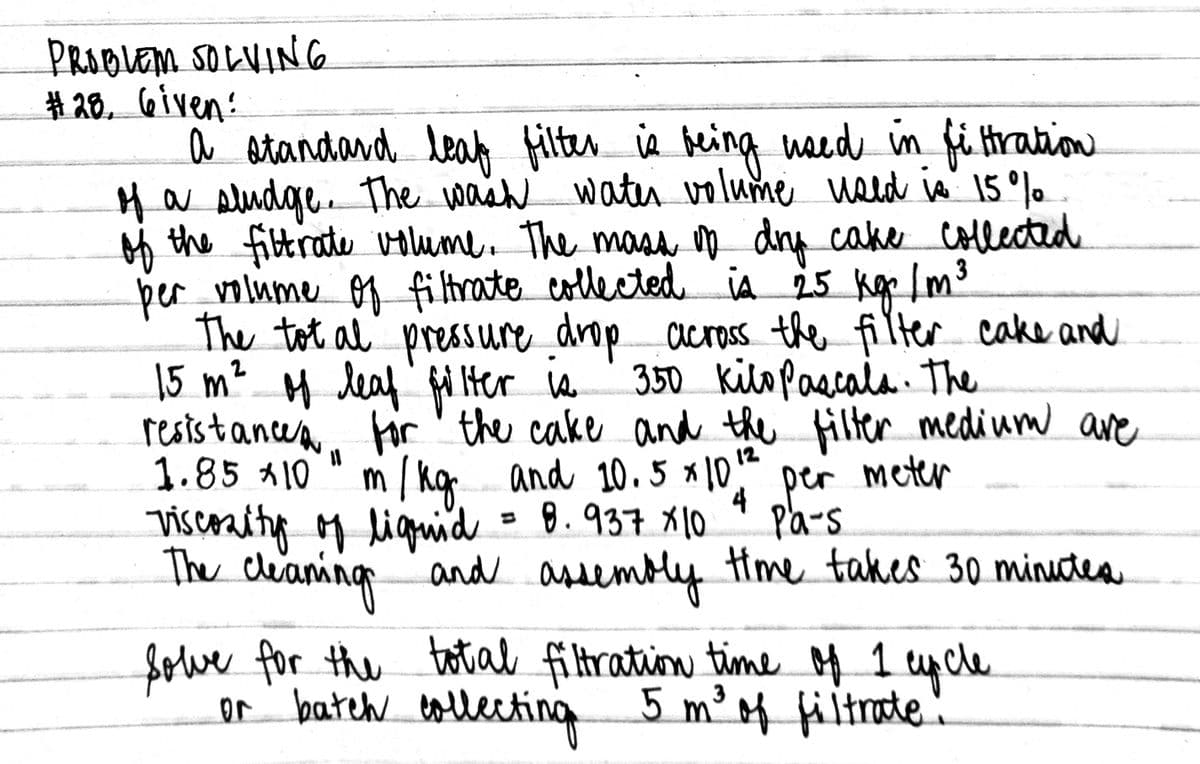 PROBLEM SOLVING
#28. Given:
A standard leaf filter is being used in filtration
of a sludge. The wash water volume used is 15%
of the filtrate volume. The mass of dry cake collected
per volume of filtrate collected is 25 kg/m³
The total pressure drop across the filter cake and
15 m² of leaf filter is 350 kiloPascals. The
resistances, for the cake and the filter medium are
1.85 x10¹¹ m/kg and 10.5 x10¹² per meter
Viscosity of liquid = 8.937 x10⁴ Pa-s
The cleaning and assembly time takes 30 minutes
Solve for the total filtration time of 1 cycle
or batch collecting 5 m³ of filtrate.